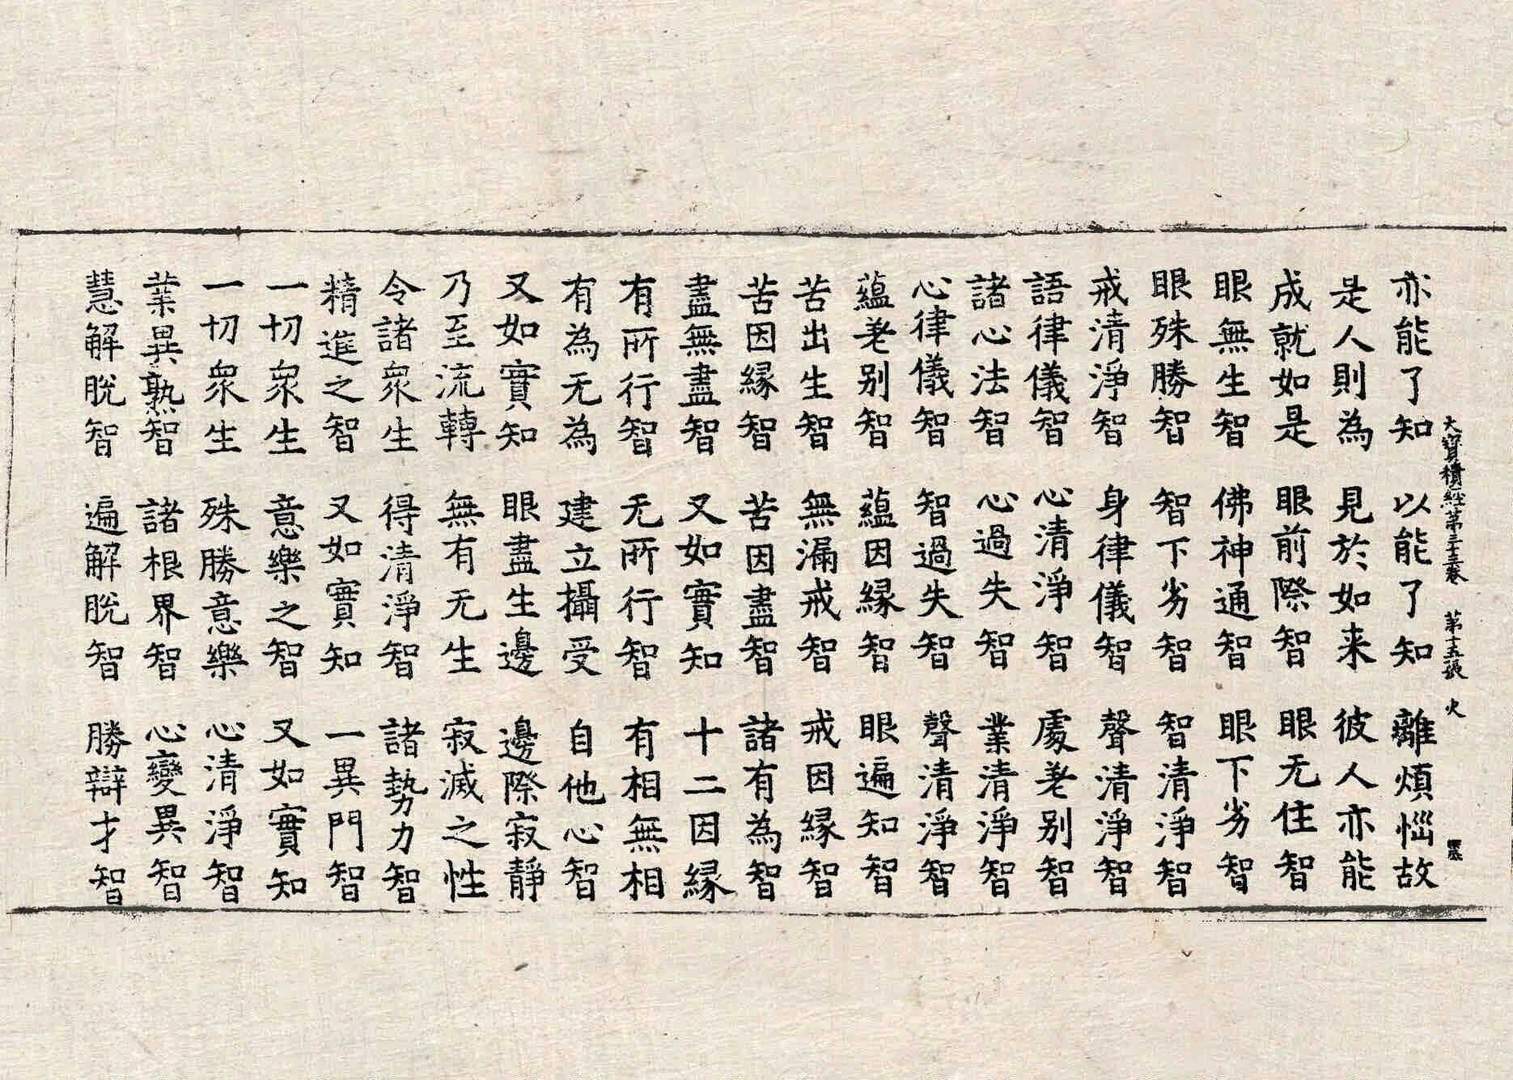 大寶積經第三十五卷 第十五張 火
亦能了知 以能了知 離煩惱故
是人則為 見於如来 彼人亦能
成就如是 眼前際智 眼无住智
眼無生智 佛神通智 眼下劣智
眼殊勝智 智下劣智 智清淨智
戒清淨智 身律儀智 聲清淨智
語律儀智 心清淨智 處差别智
諸心法智 心過失智 業清淨智
心律儀智 智過失智 聲清淨智
蘊差别智 蘊因緣智 眼遍知智
苦出生智 無漏戒智 戒因緣智
苦因緣智 苦因盡智 諸有為智
盡無盡智 又如實知 十二因緣
有所行智 无所行智 有相無相
有為无為 建立攝受 自他心智
又如實知 眼盡生邊 邊際寂靜
乃至流轉 無有无生 寂滅之性
令諸衆生 得清淨智 諸勢力智
精進之智 又如實知 一異門智
一切衆生 意樂之智 又如實知
一切衆生 殊勝意樂 心清淨智
業異熟智 諸根界智 心變異智
慧解脫智 遍解脫智 勝辯才智